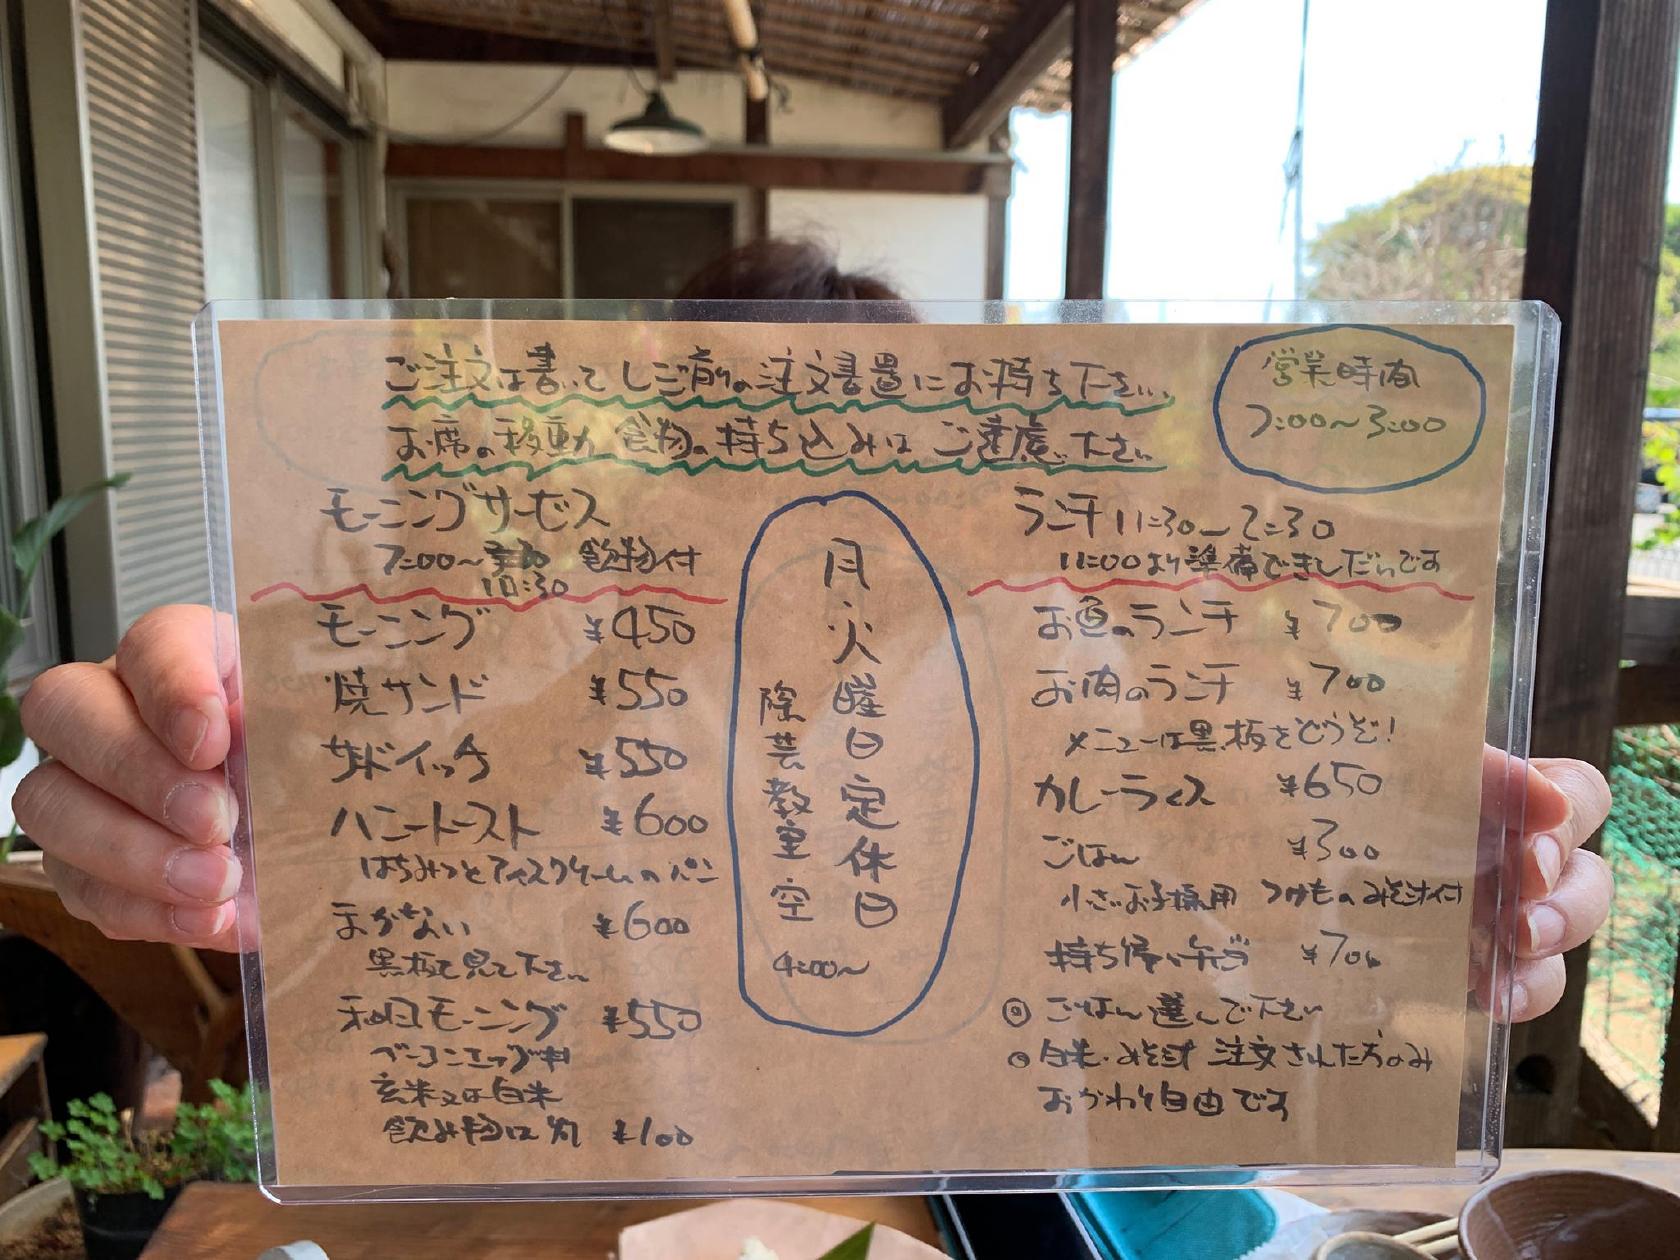 ご注文は書いてレジ前の注文書置にお持ち下さい、
お席の移動 食物の持ち込みは ご遠慮下さい
営業時間
7:00〜3:00
モーニングサービス
7:00〜 飲物付
10:30
モーニング ¥450
焼サンド ¥550
サンドイッチ ¥550
ハニートースト ¥600
はちみつとアイスクリームのパン
まかない ¥600
黒板を見て下さい
和風モーニング ¥550
ベーコンエッグ
玄米又は白米
飲み物は別 ¥100
月火曜日定休日
陶芸教室
4:00〜
ランチ 11:30〜2:30
11:00より準備できしだいです
お魚のランチ ¥700
お肉のランチ ¥700
メニューは黒板をどうぞ!
カレーライス ¥650
ごはん ¥300
小さいお子様用 つけもの みそ汁付
持ち帰り弁当 ¥700
◎ ごはん選んで下さい
◎ 白米・みそ汁 注文された方のみ
おかわり自由です